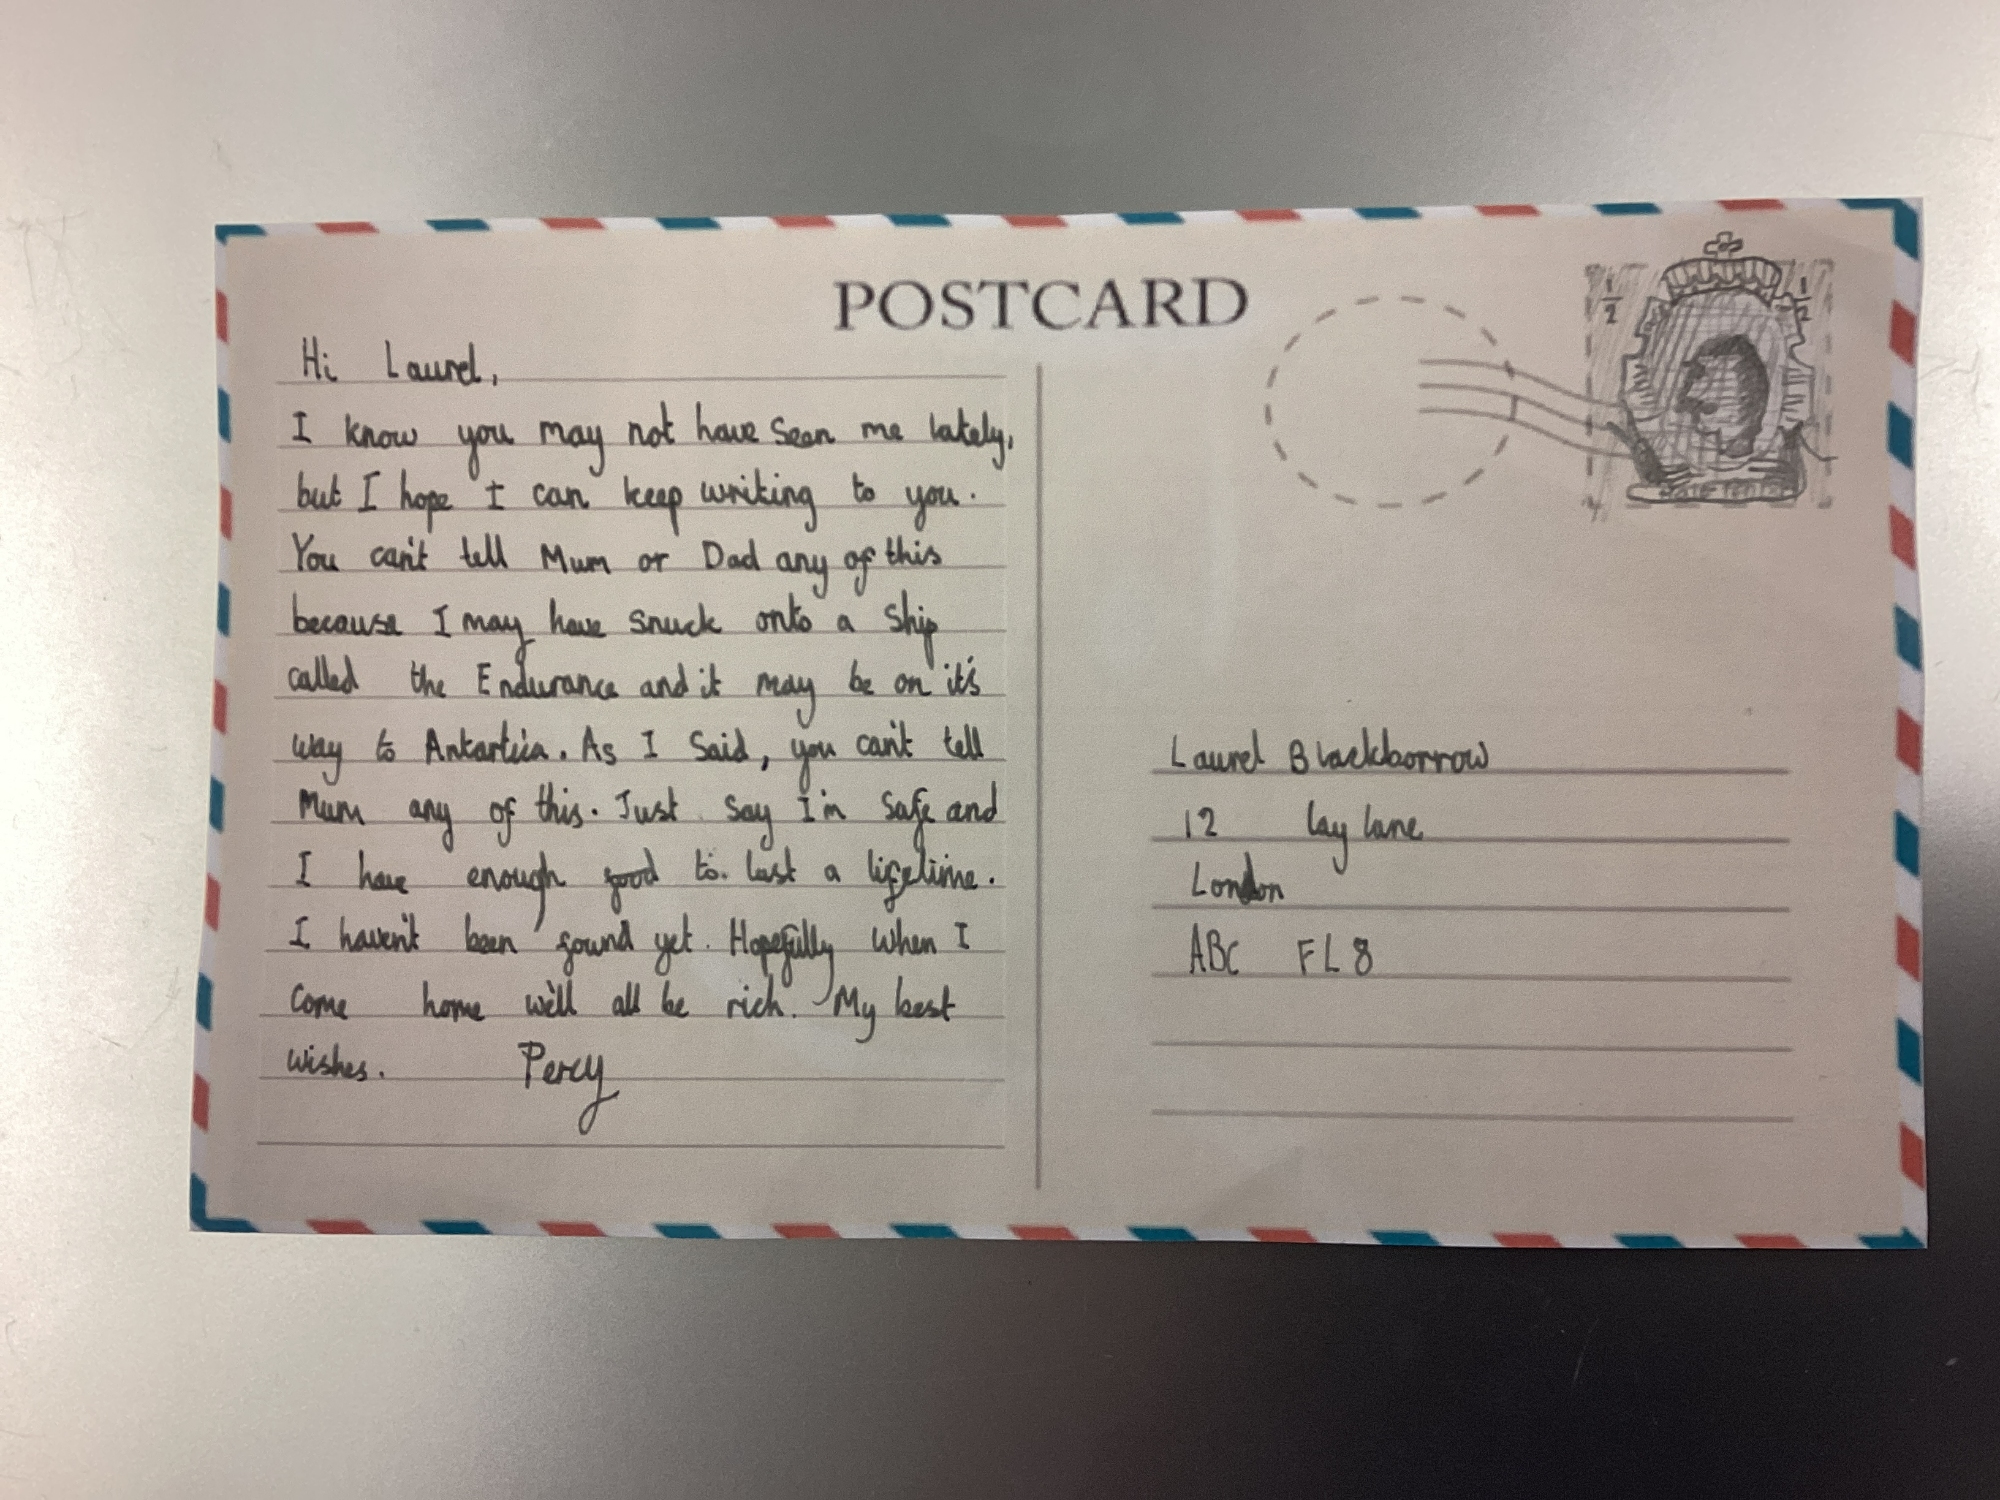 POSTCARD
Hi Laurel,
I know you may not have seen me lately,
but I hope I can keep writing to you.
You can't tell Mum or Dad any of this
because I may have snuck onto a ship
called the Endurance and it may be on it's
way to Antartica. As I said, you can't tell
Mum any of this. Just say I'm safe and
I have enough food to last a lifetime.
I haven't been found yet. Hopefully when I
come home we'll all be rich. My best
wishes. Percy
1/2 1/2
Laurel Blackborrow
12 lay lane
London
ABC FL8